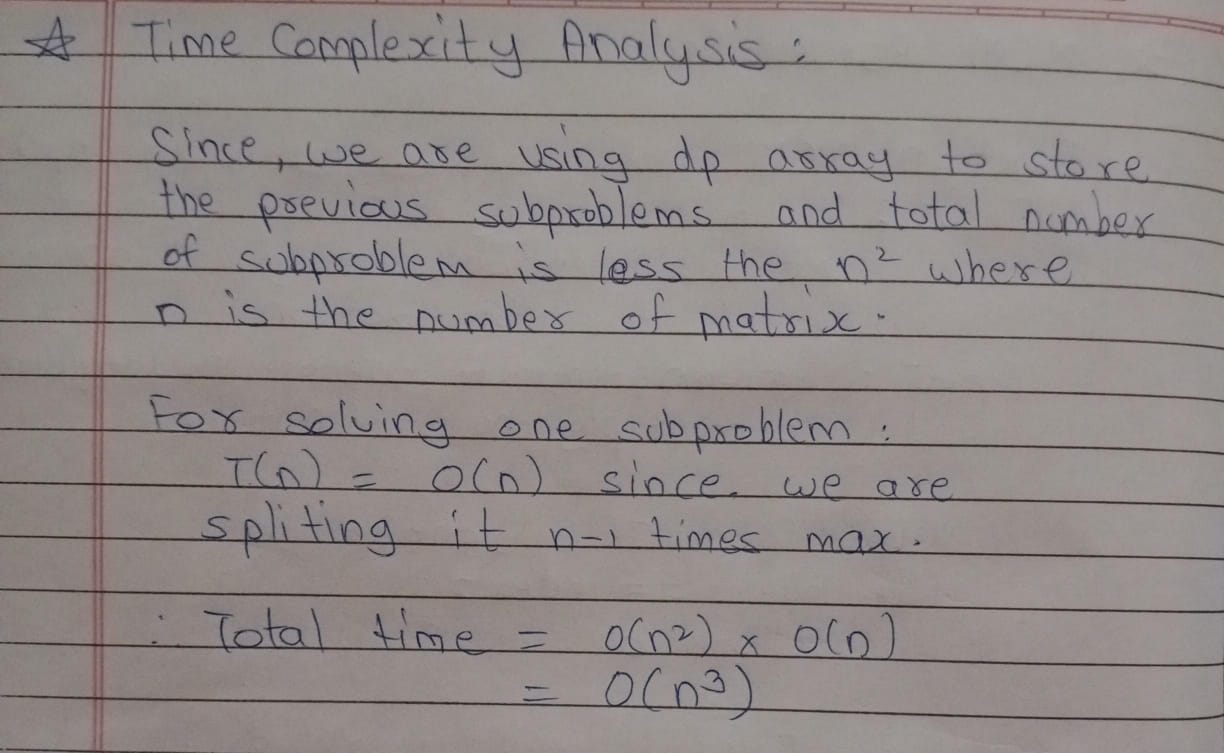 ☆ Time Complexity Analysis :
Since, we are using dp array to store
the previous subproblems and total number
of subproblem is less the n² where
n is the number of matrix.
For solving one subproblem :
T(n) = O(n) since we are
spliting it n-1 times max.
∴ Total time = O(n²) x O(n)
= O(n³)